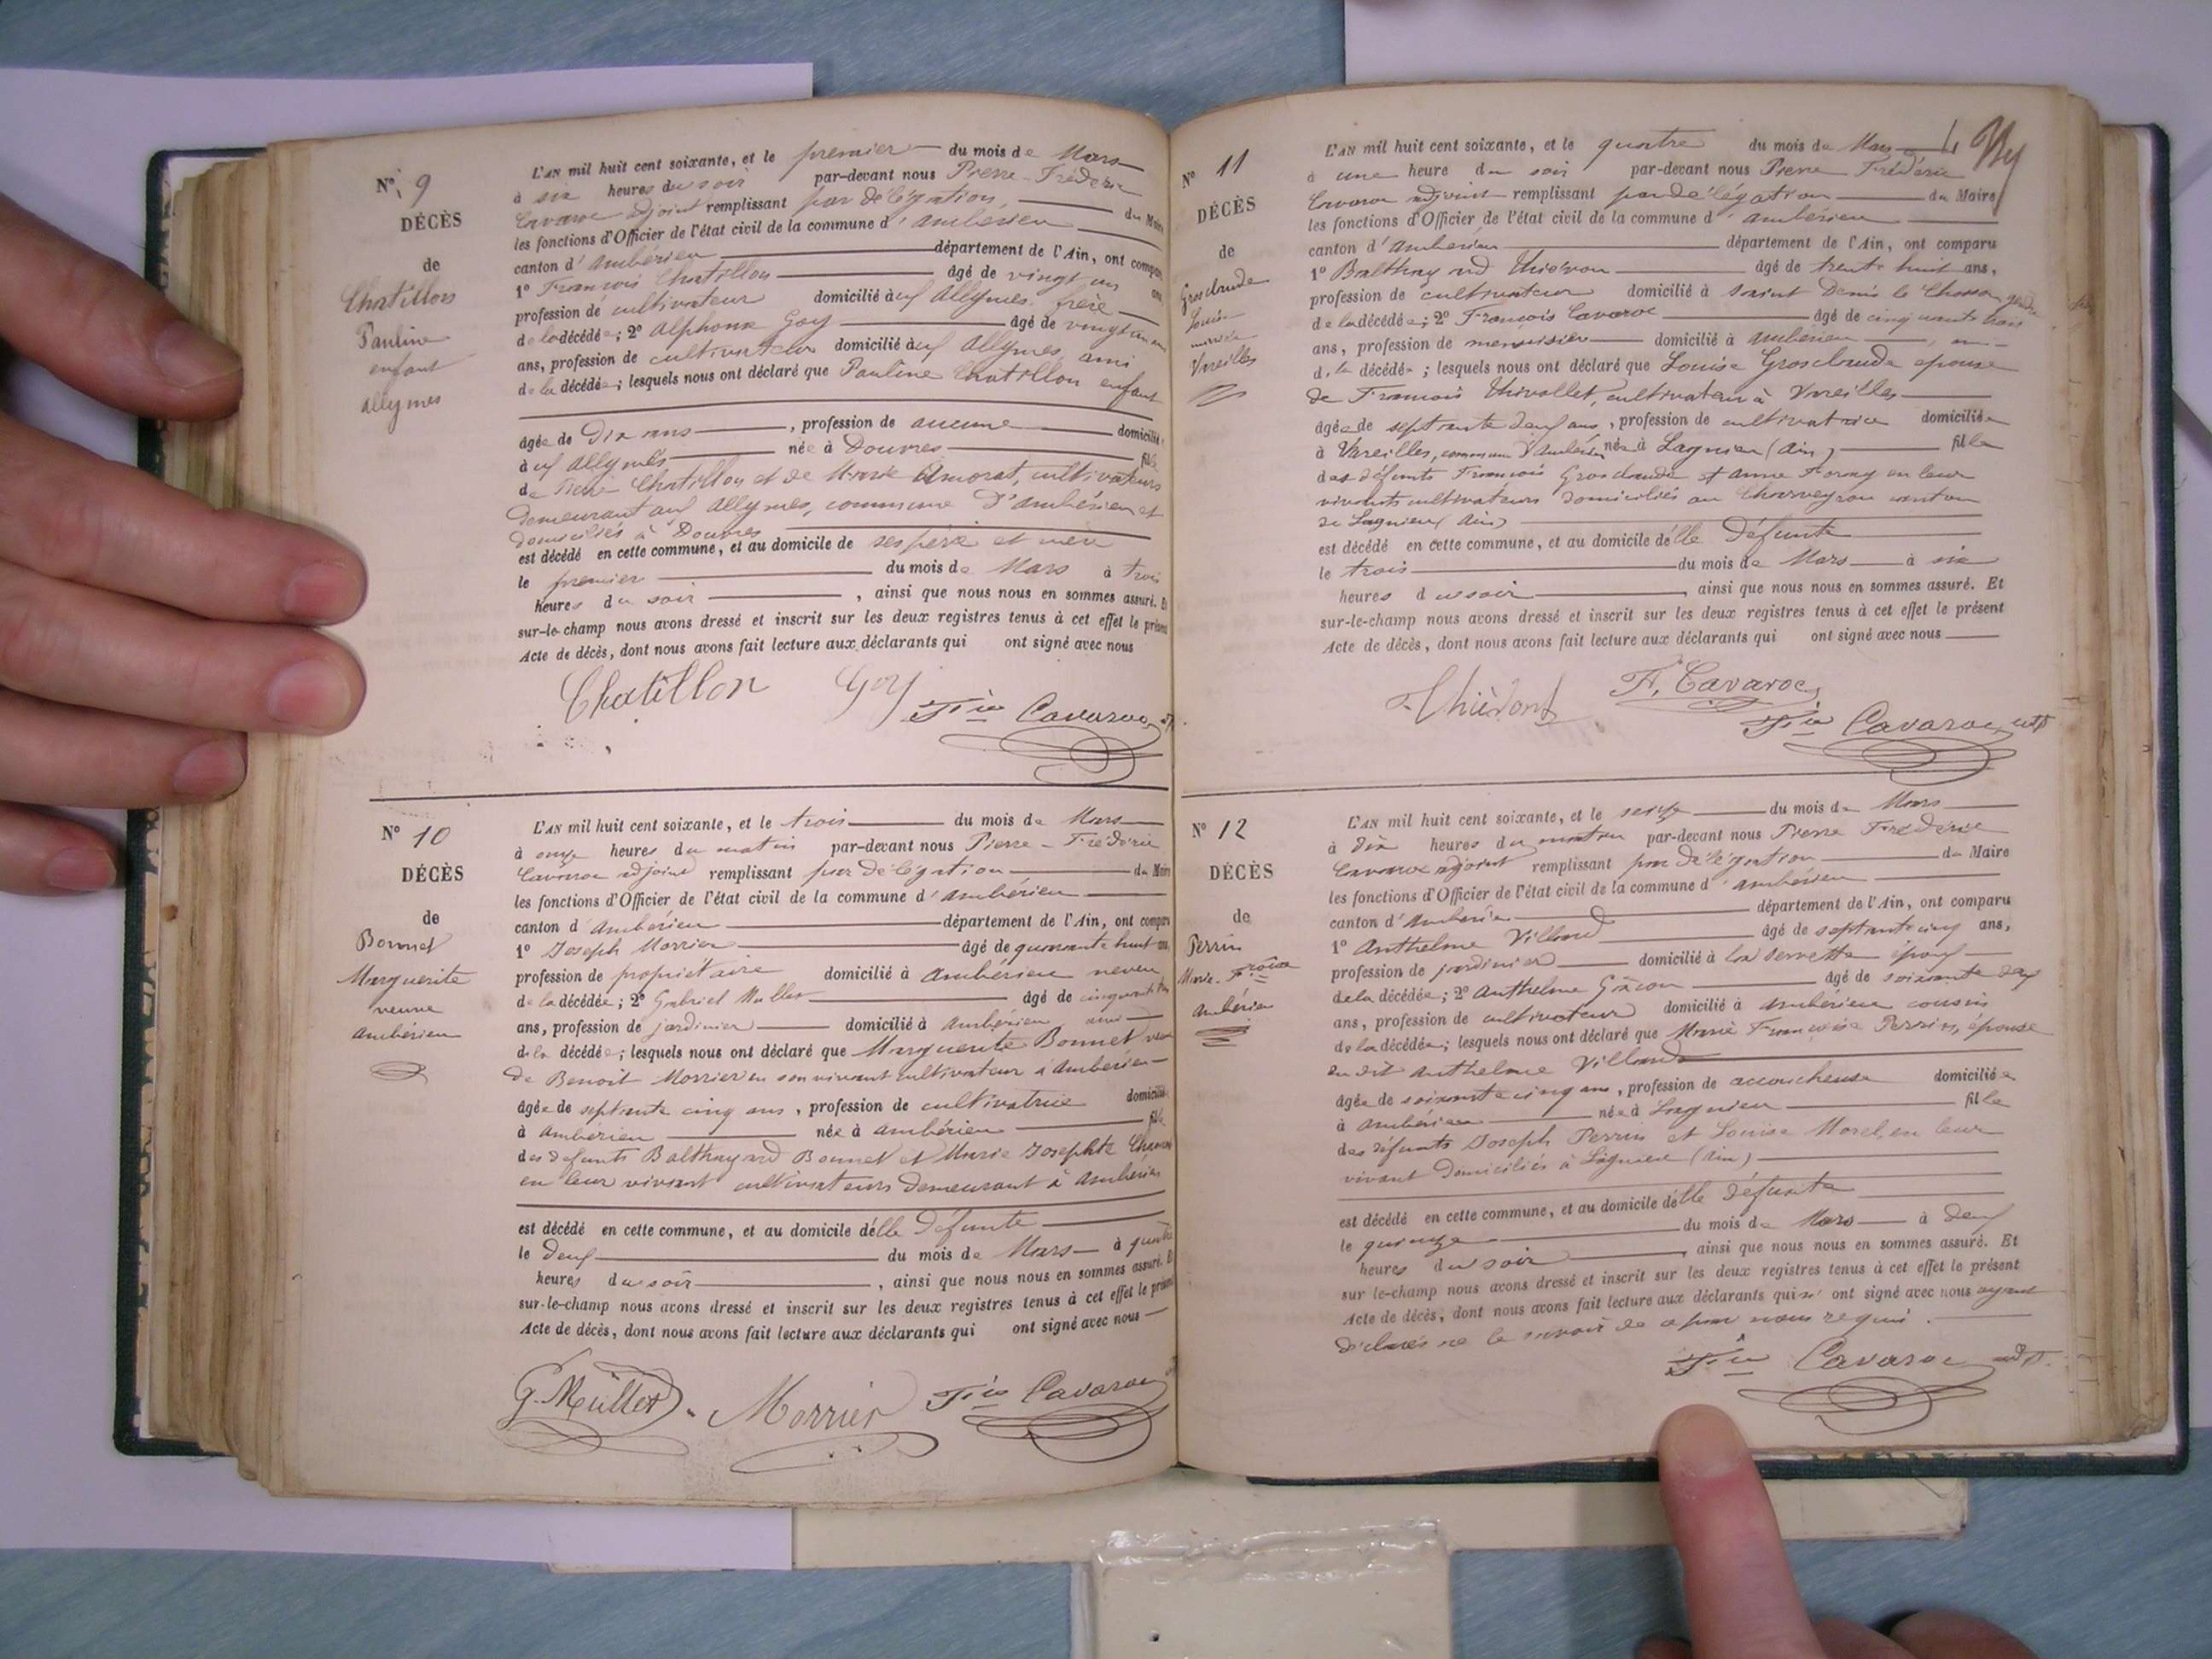 N° 9
DÉCÈS
de
Chatillon
Pauline
enfant
allymes
L'AN mil huit cent soixante, et le premier du mois de Mars
à six heures du soir par-devant nous Pierre-Frédéric
Cavaroc adjoint remplissant par délégation du Maire
les fonctions d'Officier de l'état civil de la commune d'ambérieu
canton d'ambérieu département de l'Ain, ont comparu
1° François Chatillon âgé de vingt un ans
profession de cultivateur domicilié aux allymes frère
de la décédée; 2° alphonse Goy âgé de vingt un
ans, profession de cultivateur domicilié aux allymes, ami
de la décédée; lesquels nous ont déclaré que Pauline Chatillon enfant
âgée de dix ans, profession de aucune domiciliée
aux allymes née à Douvres fille
de Chatillon et de Marie amorat, cultivateurs
demeurant aux allymes, commune d'ambérieu et
domiciliés à Douvres
est décédé en cette commune, et au domicile de ses père et mère
le premier du mois de Mars à trois
heures du soir, ainsi que nous nous en sommes assuré. Et
sur-le-champ nous avons dressé et inscrit sur les deux registres tenus à cet effet le présent
Acte de décès, dont nous avons fait lecture aux déclarants qui ont signé avec nous
Chatillon Goy Fic Cavaroc
N° 10
DÉCÈS
de
Bonnet
Marguerite
veuve
ambérieu
L'AN mil huit cent soixante, et le trois du mois de Mars
à onze heures du matin par-devant nous Pierre-Frédéric
Cavaroc adjoint remplissant par délégation du Maire
les fonctions d'Officier de l'état civil de la commune d'ambérieu
canton d'ambérieu département de l'Ain, ont comparu
1° Joseph Morrier âgé de quarante huit ans,
profession de propriétaire domicilié à ambérieu neveu
de la décédée; 2° Gabriel Muller âgé de cinquante
ans, profession de jardinier domicilié à ambérieu ami
de la décédée; lesquels nous ont déclaré que Marguerite Bonnet veuve
de Benoit Morrier en son vivant cultivateur à ambérieu
âgée de septante cinq ans, profession de cultivatrice domiciliée
à ambérieu née à ambérieu fille
des défunts Balthazard Bonnet et Marie Josephte
en leur vivant cultivateurs demeurant à ambérieu
est décédé en cette commune, et au domicile d'elle défunte
le deux du mois de Mars à quatre
heures du soir, ainsi que nous nous en sommes assuré. Et
sur-le-champ nous avons dressé et inscrit sur les deux registres tenus à cet effet le présent
Acte de décès, dont nous avons fait lecture aux déclarants qui ont signé avec nous
G. Müller Morrier Fic Cavaroc
N° 11
DÉCÈS
de
Grosclaude
Louise
mariée
Vareilles
L'AN mil huit cent soixante, et le quatre du mois de Mars
à une heure du soir par-devant nous Pierre Frédéric
Cavaroc adjoint remplissant par délégation du Maire
les fonctions d'Officier de l'état civil de la commune d'ambérieu
canton d'ambérieu département de l'Ain, ont comparu
1° Balthazard Thiévon âgé de trente huit ans,
profession de cultivateur domicilié à Saint Denis le Chosson gendre
de la décédée; 2° François Cavaroc âgé de cinquante trois
ans, profession de menuisier domicilié à ambérieu, ami
de la décédée; lesquels nous ont déclaré que Louise Grosclaude épouse
de François Thivollet, cultivateur à Vareilles
âgée de septante deux ans, profession de cultivatrice domiciliée
à Vareilles, commune d'ambérieu née à Lagnieu (Ain) fille
des défunts François Grosclaude et anne Fornay en leur
vivants cultivateurs domiciliés au Charveyron canton
de Lagnieu (Ain)
est décédé en cette commune, et au domicile d'elle défunte
le trois du mois de Mars à six
heures du soir, ainsi que nous nous en sommes assuré. Et
sur-le-champ nous avons dressé et inscrit sur les deux registres tenus à cet effet le présent
Acte de décès, dont nous avons fait lecture aux déclarants qui ont signé avec nous
F. Cavaroc
Fic Cavaroc adt
N° 12
DÉCÈS
de
Perrin
Marie-Fçoise
ambérieu
L'AN mil huit cent soixante, et le seize du mois de Mars
à dix heures du matin par-devant nous Pierre Frédéric
Cavaroc adjoint remplissant par délégation du Maire
les fonctions d'Officier de l'état civil de la commune d'ambérieu
canton d'ambérieu département de l'Ain, ont comparu
1° Anthelme Villard âgé de septante cinq ans,
profession de jardinier domicilié à la Servette époux
de la décédée; 2° Anthelme Gâcon âgé de soixante deux
ans, profession de cultivateur domicilié à ambérieu cousin
de la décédée; lesquels nous ont déclaré que Marie Françoise Perrin, épouse
du dit anthelme Villard
âgée de soixante cinq ans, profession de accoucheuse domiciliée
à ambérieu née à Lagnieu fille
des défunts Joseph Perrin et Louise Morel, en leur
vivant domiciliés à Lagnieu (Ain)
est décédé en cette commune, et au domicile d'elle défunte
le quinze du mois de Mars à deux
heures du soir, ainsi que nous nous en sommes assuré. Et
sur le-champ nous avons dressé et inscrit sur les deux registres tenus à cet effet le présent
Acte de décès, dont nous avons fait lecture aux déclarants qui n'ont signé avec nous ayant
déclarés ne le savoir de ce par nous requis.
Fic Cavaroc adt.